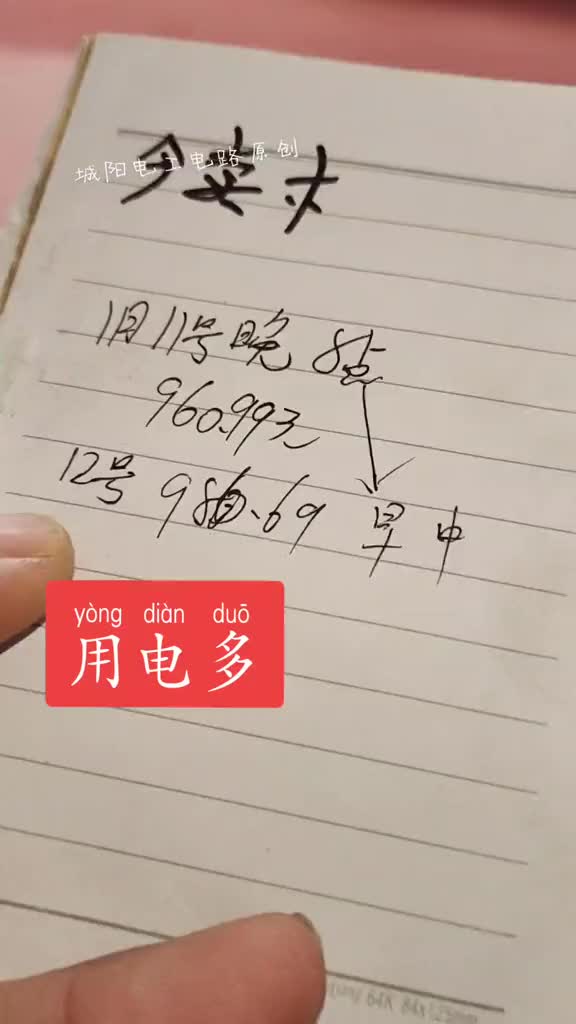 城阳电工电路原创
1月11号晚8点
960.99元
12号 980.69 早中
yòng diàn duō
用电多
64K 84x125mm